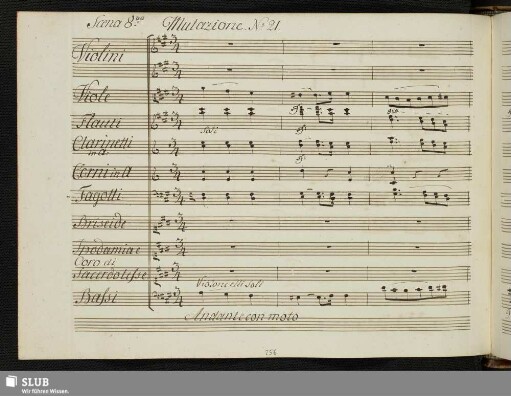 Scena 8.va Mutazione. No 21
Violini
Viole
Flauti
Soli
Clarinetti
in A
Corni in A
Fagotti
Briseide
Ippodamia e
Coro di
Sacerdotesse
Violoncelli Soli
Bassi
Andante con moto
156
SLUB
Wir führen Wissen.